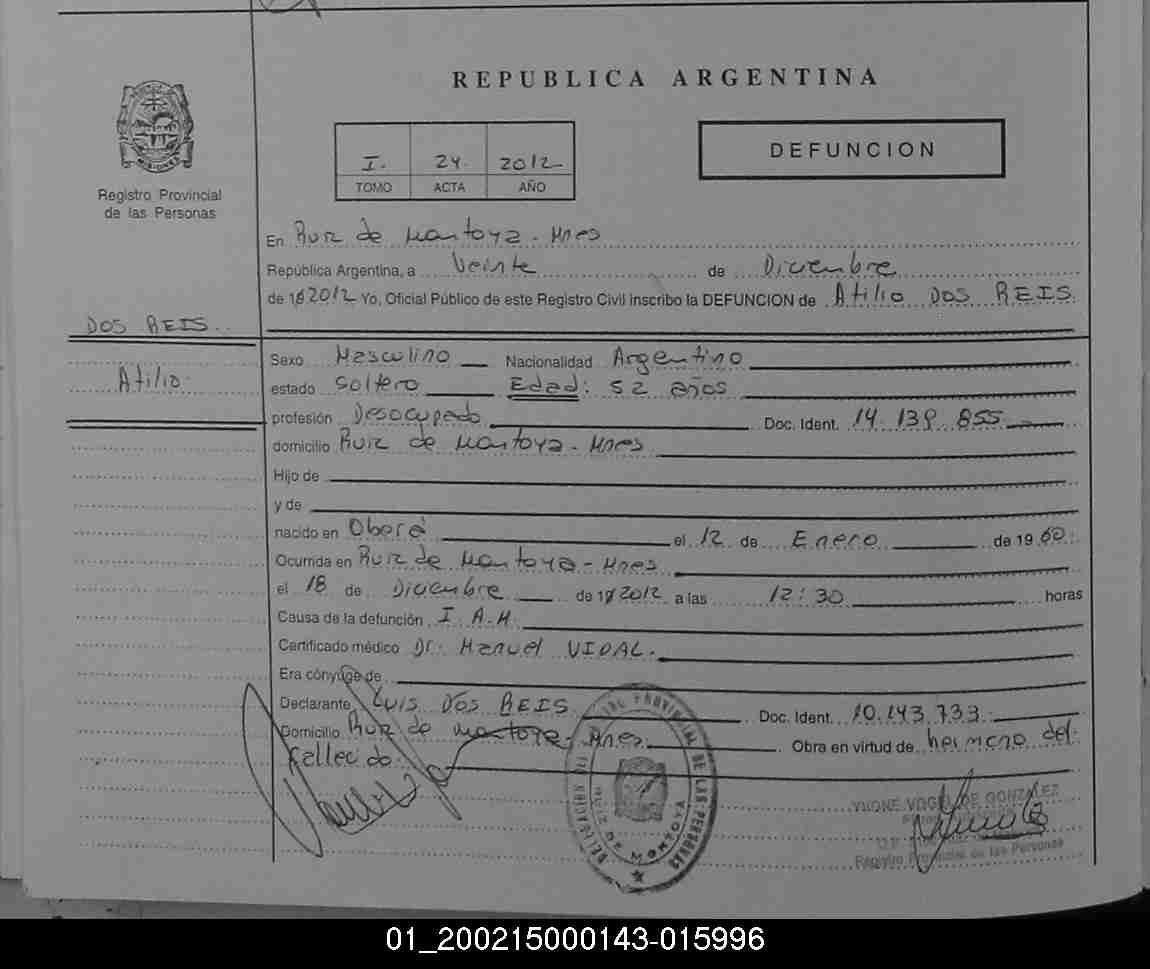 REPUBLICA ARGENTINA
I. 24. 2012
TOMO ACTA AÑO
DEFUNCION
MISIONES
Registro Provincial
de las Personas
En Ruiz de Montoya - Mnes
República Argentina, a Veinte de Diciembre
de 2012 Yo, Oficial Público de este Registro Civil inscribo la DEFUNCION de Atilio DOS REIS
DOS REIS
Atilio
Sexo Masculino Nacionalidad Argentino
estado Soltero Edad: 52 años
profesión Desocupado Doc. Ident. 14.139.855
domicilio Ruiz de Montoya - Mnes
Hijo de
y de
nacido en Oberá el 12 de Enero de 1960
Ocurrida en Ruiz de Montoya - Mnes
el 18 de Diciembre de 2012 a las 12:30 horas
Causa de la defunción I.A.M.
Certificado médico Dr. Manuel VIDAL.
Era cónyuge de
Declarante Luis DOS REIS Doc. Ident. 10.143.733
Domicilio Ruiz de Montoya - Mnes. Obra en virtud de hermano del
fallecido
PROVINCIAL DE LAS PERSONAS
RUIZ DE MONTOYA
DE GONZALEZ
Registro Provincial de las Personas
01_200215000143-015996